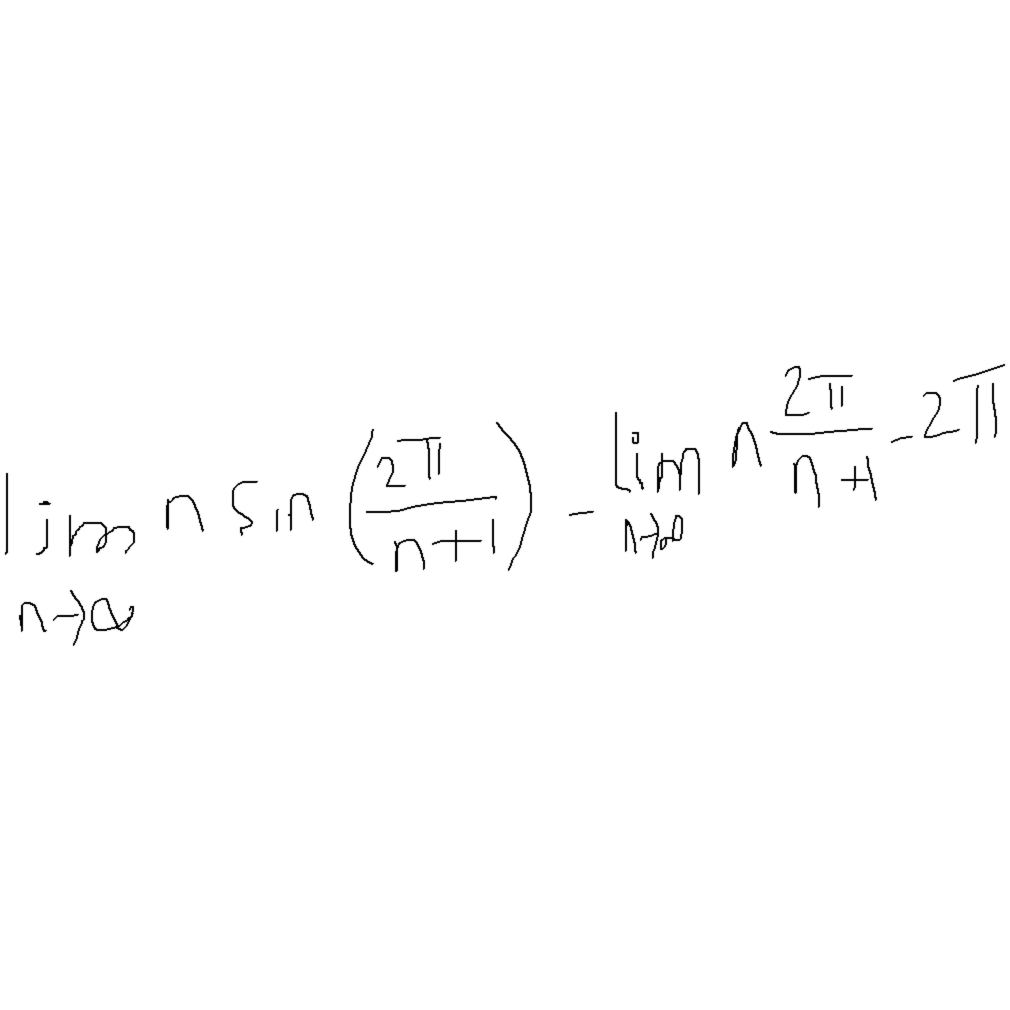 lim n→∞ n sin (2π/(n+1)) - lim n→∞ n 2π/(n+1) - 2π